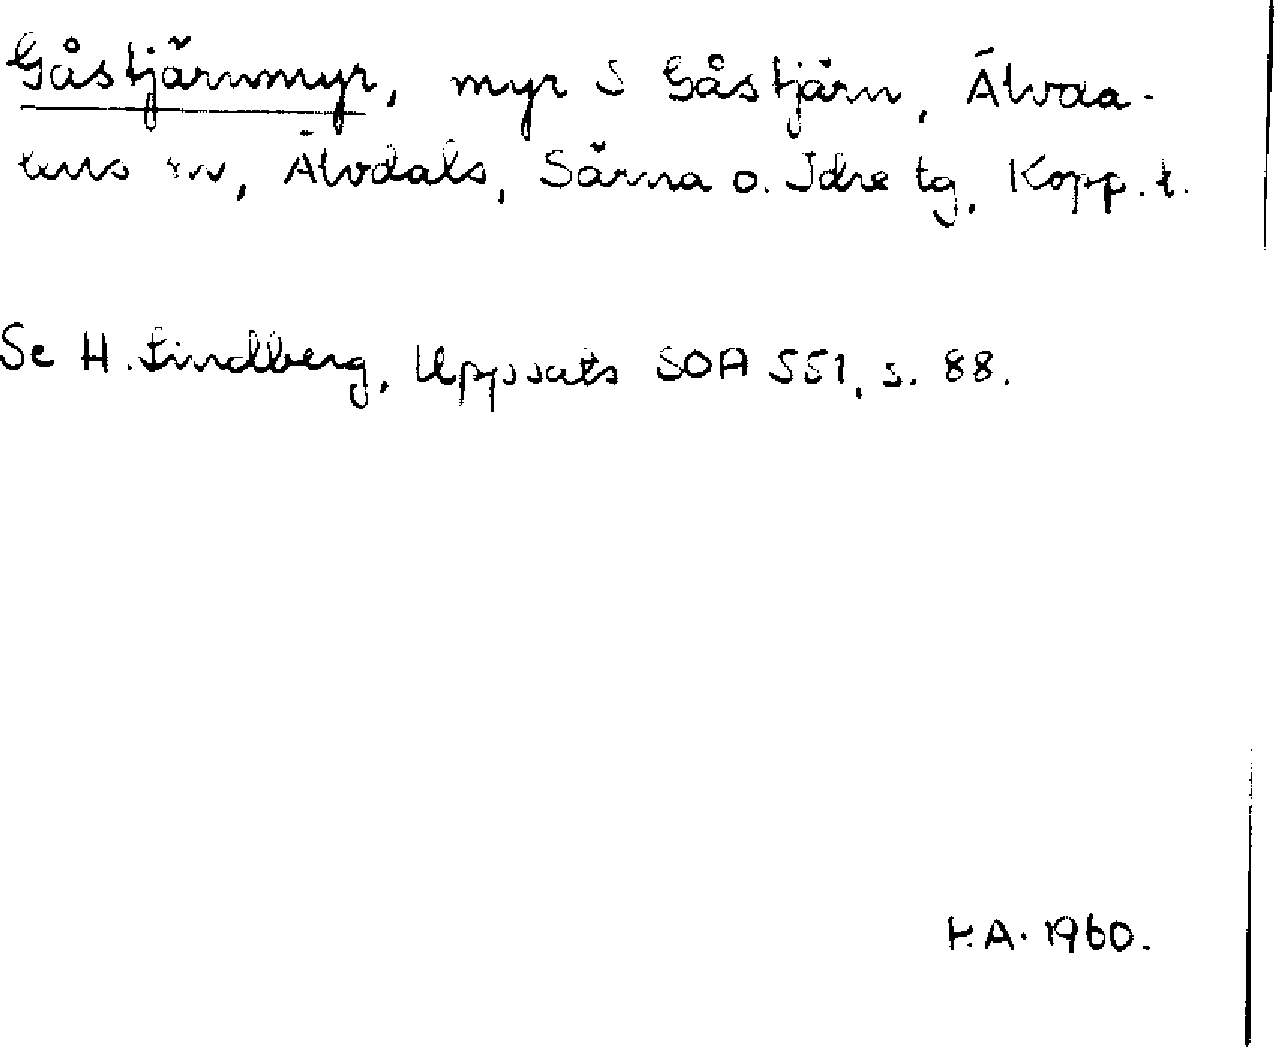 Gåstjärnmyr, myr S Gåstjärn, Älvda-
lens sn, Älvdals, Särna o. Idre tg, Kopp. l.
Se H. Lindberg, Uppsats SOA 551, s. 88.
H.A. 1960.